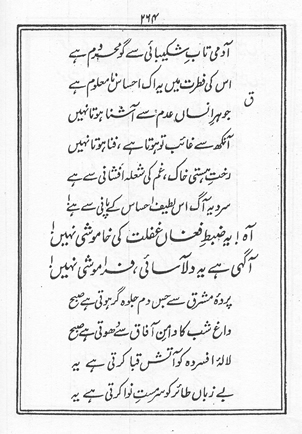 ۲۶۴
آدمی تابِ شکیبائی سے گو محروم ہے
اس کی فطرت میں یہ اک احساسِ نامعلوم ہے
ق
جوہرِ انساں عدم سے آشنا ہوتا نہیں
آنکھ سے غائب تو ہوتا ہے، فنا ہوتا نہیں
رختِ ہستی خاک، غم کی شعلہ افشانی سے ہے
سرد یہ آگ اس لطیف احساس کے پانی سے ہے!
آہ! یہ ضبطِ فغاں غفلت کی خاموشی نہیں!
آگہی ہے یہ دلآسائی، فراموشی نہیں!
پردۂ مشرق سے جس دم جلوہ گر ہوتی ہے صبح
داغ شب کا دامنِ آفاق سے دھوتی ہے صبح
لالۂ افسردہ کو آتش قبا کرتی ہے یہ
بے زباں طائر کو سرمستِ نوا کرتی ہے یہ